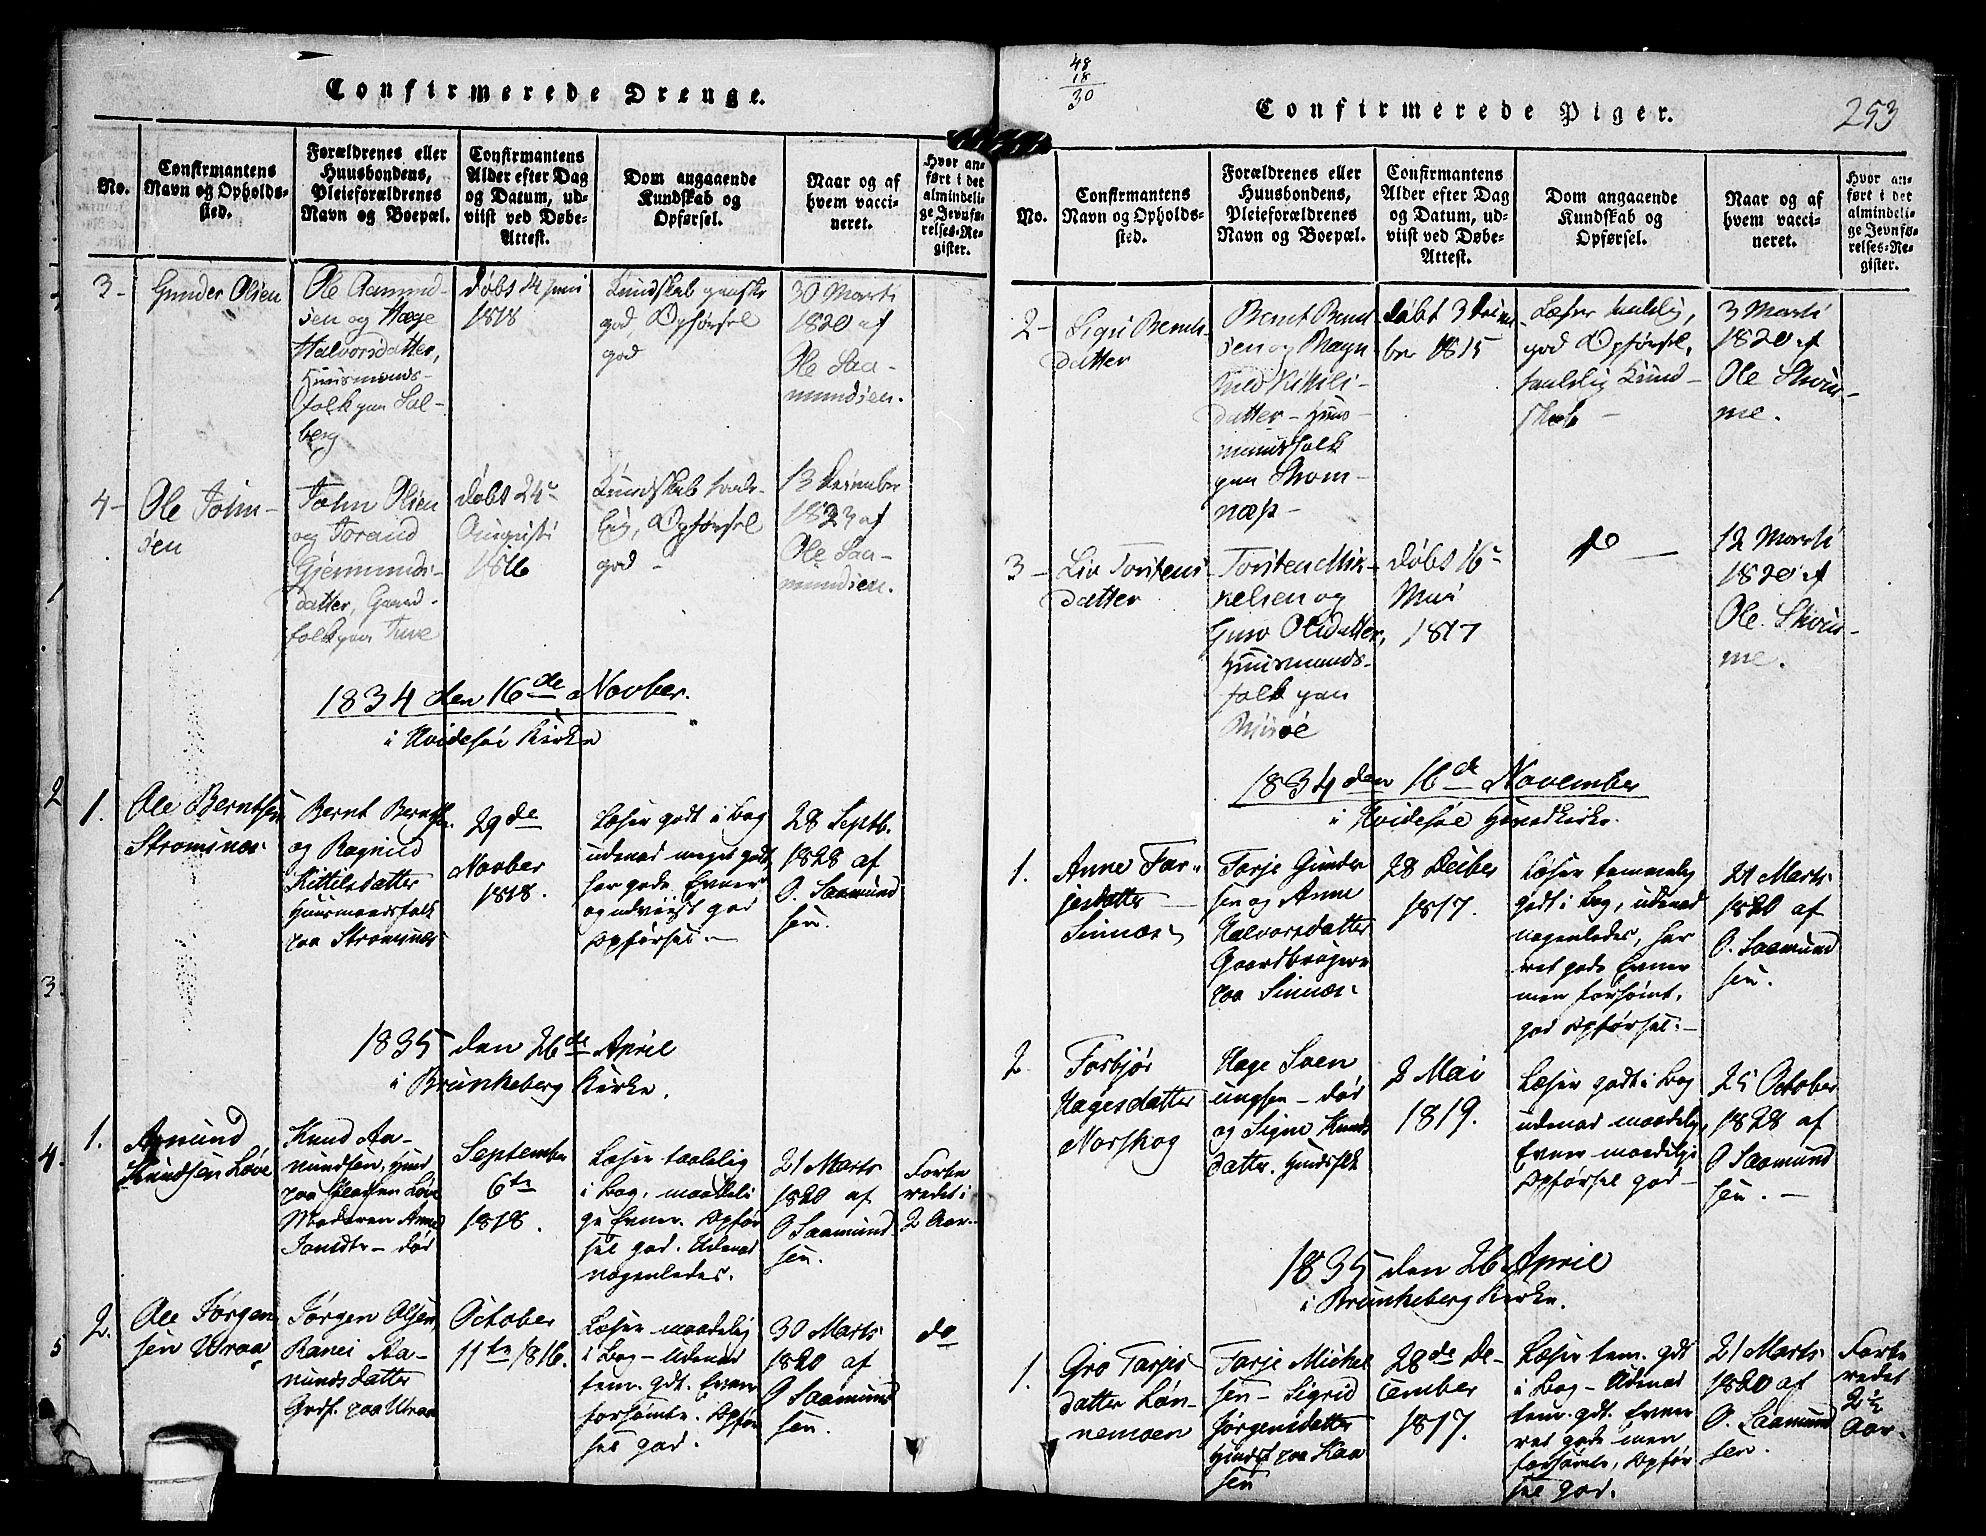 Confirmerede Drenge.
No.
Confirmantens
Navn og Opholds-
sted.
Forældrenes eller
Huusbondens,
Pleieforældrenes
Navn og Boepæl.
Confirmantens
Alder efter Dag
og Datum, ud-
viist ved Døbe-
Attest.
Dom angaaende
Kundskab og
Opførsel.
Naar og af
hvem vacci-
neret.
Hvor an-
ført i det
almindeli-
ge Jevnfø-
relses-Re-
gister.
3-
Gunder Olsen
Ole Aamund-
sen og Hæge
Halvorsdatter,
Huusmands-
folk paa Sol-
berg
døbt 14 Juni
1818
Kundskab ganske
god, Opførsel
god
30 Marti
1820 af
Ole Saa-
mundsen.
4-
Ole John-
sen
John Olsen
og Torand
Gjermunds-
datter, Gaard-
folk paa
døbt 24
Augusti
1816
Kundskab taale-
lig, Opførsel
god -
13 December
1823 af
Ole Saa-
mundsen.
1834 den 16de Novber.
i Hvidesøe Kirke
1.
Ole Berntsen
Stromsnes
Bernt Berntsen
og Ragnild
Kittilsdatter
Huusmandsfolk
paa Stromsnes
29de
Novber
1818.
Læser godt i Bog
udenad meget godt
har gode Evner
og udviist god
Opførsel.-
28 Septb.
1828 af
O. Saamund
sen.
1835 den 26de April
i Brunkeberg Kirke.
1.
Amund
Knudsen Løve
Knud Aa-
mundsen, Huusf
paa Løve
Moderen Anne
Jonsdtr - død
September
6te
1818.
Læser taalelig
i Bog, maadeli
ge Evner. Opfør
sel god. Udenad
nogenledes.
21 Marts
1820 af
O Saamund
sen.
Forbe
redet i
2 Aar.
2.
Ole Jørgen
sen Uraa
Jørgen Olsen,
Ranei Aa-
mundsdatter
Grdf. paa Uraa
October
11te 1816.
Læser maadelig
i Bog - Udenad
tem. gdt. Evner
forsømte. Opfør
sel god.
30 Marts
1820 af
O Saamund
sen.
do
48
18
30
Confirmerede Piger.
253
No.
Confirmantens
Navn og Opholds-
sted.
Forældrenes eller
Huusbondens,
Pleieforældrenes
Navn og Boepæl.
Confirmantens
Alder efter Dag
og Datum, ud-
viist ved Døbe-
Attest.
Dom angaaende
Kundskab og
Opførsel.
Naar og af
hvem vacci-
neret.
Hvor an-
ført i det
almindeli-
ge Jevnfø-
relses-Re-
gister.
2-
Sigri Bernts-
datter
Bernt Bernt
sen og Ragn
hild Kitils-
datter - Huus-
mandsfolk
paa Strom-
næs-
døbt 3 Decem
ber 1815
Læser taalelig,
god Opførsel,
taalelig Kund-
skab -
3 Marti
1820 af
Ole Skrus-
me.
3-
Liv Torstens-
datter
Torsten Mik-
kelsen og
Guro Olsdatter,
Huusmands-
folk paa
døbt 16
Mai
1817
do -
12 Marti
1820 af
Ole Skrus-
me.
1834 den 16de November
i Hvidesøe Hovedkirke.
1.
Anne Tar-
jesdatter
Sinnes
Tarje Gunder
sen og Anne
Halvorsdatter
Gaardbrugere
paa Sinnes
28 Decber
1817.
Læser temmelig
godt i Bog, udenad
nogenledes, har
ret gode Evner
men forsømt.
god Opførsel.-
21 Marts
1820 af
O. Saamund
sen.
2
Torbjør
Hagesdatter
Norskog
Hage Sven
ungsen - død
og Signe Knuds
datter. Huusflk
2 Mai
1819.
Læser godt i Bog
udenad maadelig,
Evner maadelige
Opførsel god-
25 October
1828 af
O Saamund
sen. -
1835 den 26 April
i Brunkeberg Kirke.
1.
Gro Tarjes
datter Løn-
nemoen
Tarje Mickel
sen - Sigrid
Jørgensdatter
Huusf paa Kaa
sen
28de De-
cember
1817.
Læser tem. gdt
i Bog - Udenad
tem. gdt. Evner
ret gode men
forsømte, Opfør
sel god.
21 Marts
1820 af
O. Saamund
sen.
Forbe
redet
2 1/2
Aar.
2
3.
4.
5